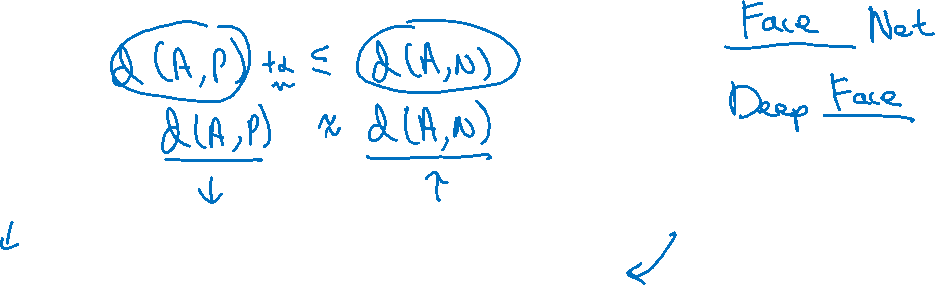 d(A,P) +α ≤ d(A,N)
d(A,P) ≈ d(A,N)
Face Net
Deep Face